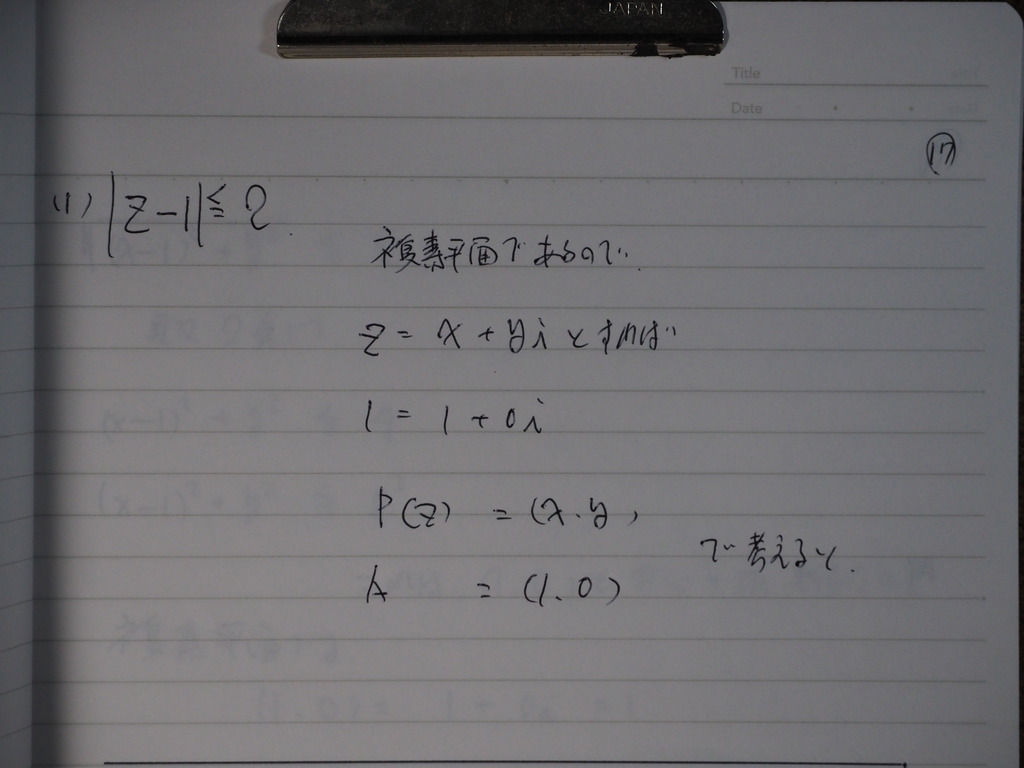 JAPAN
Title
Date
⑰
(1) |z-1|≦2.
複素平面であるので.
z = x + yi とすれば
1 = 1 + 0i
P(z) = (x.y)
で考えると.
A = (1.0)